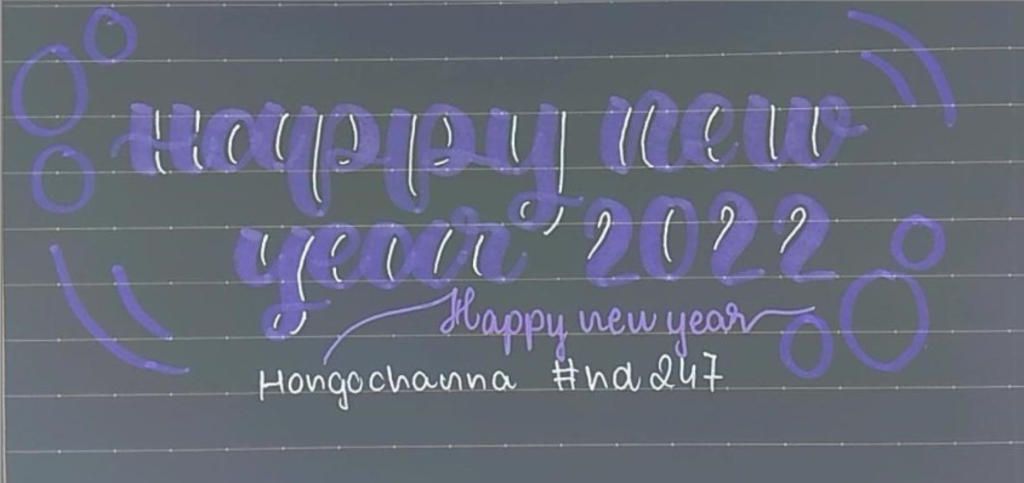 Happy new
year 2022
Happy new year
Hongochanna #nd247